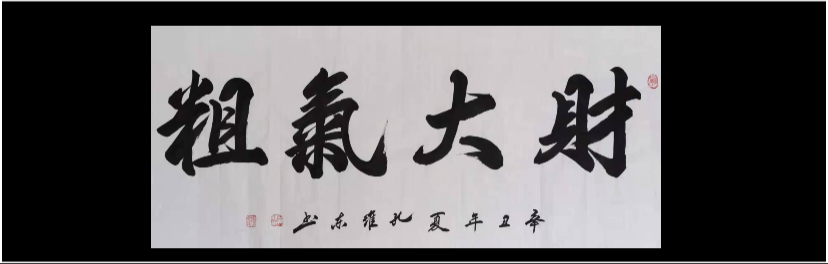 財大氣粗
辛丑年夏孔維东书